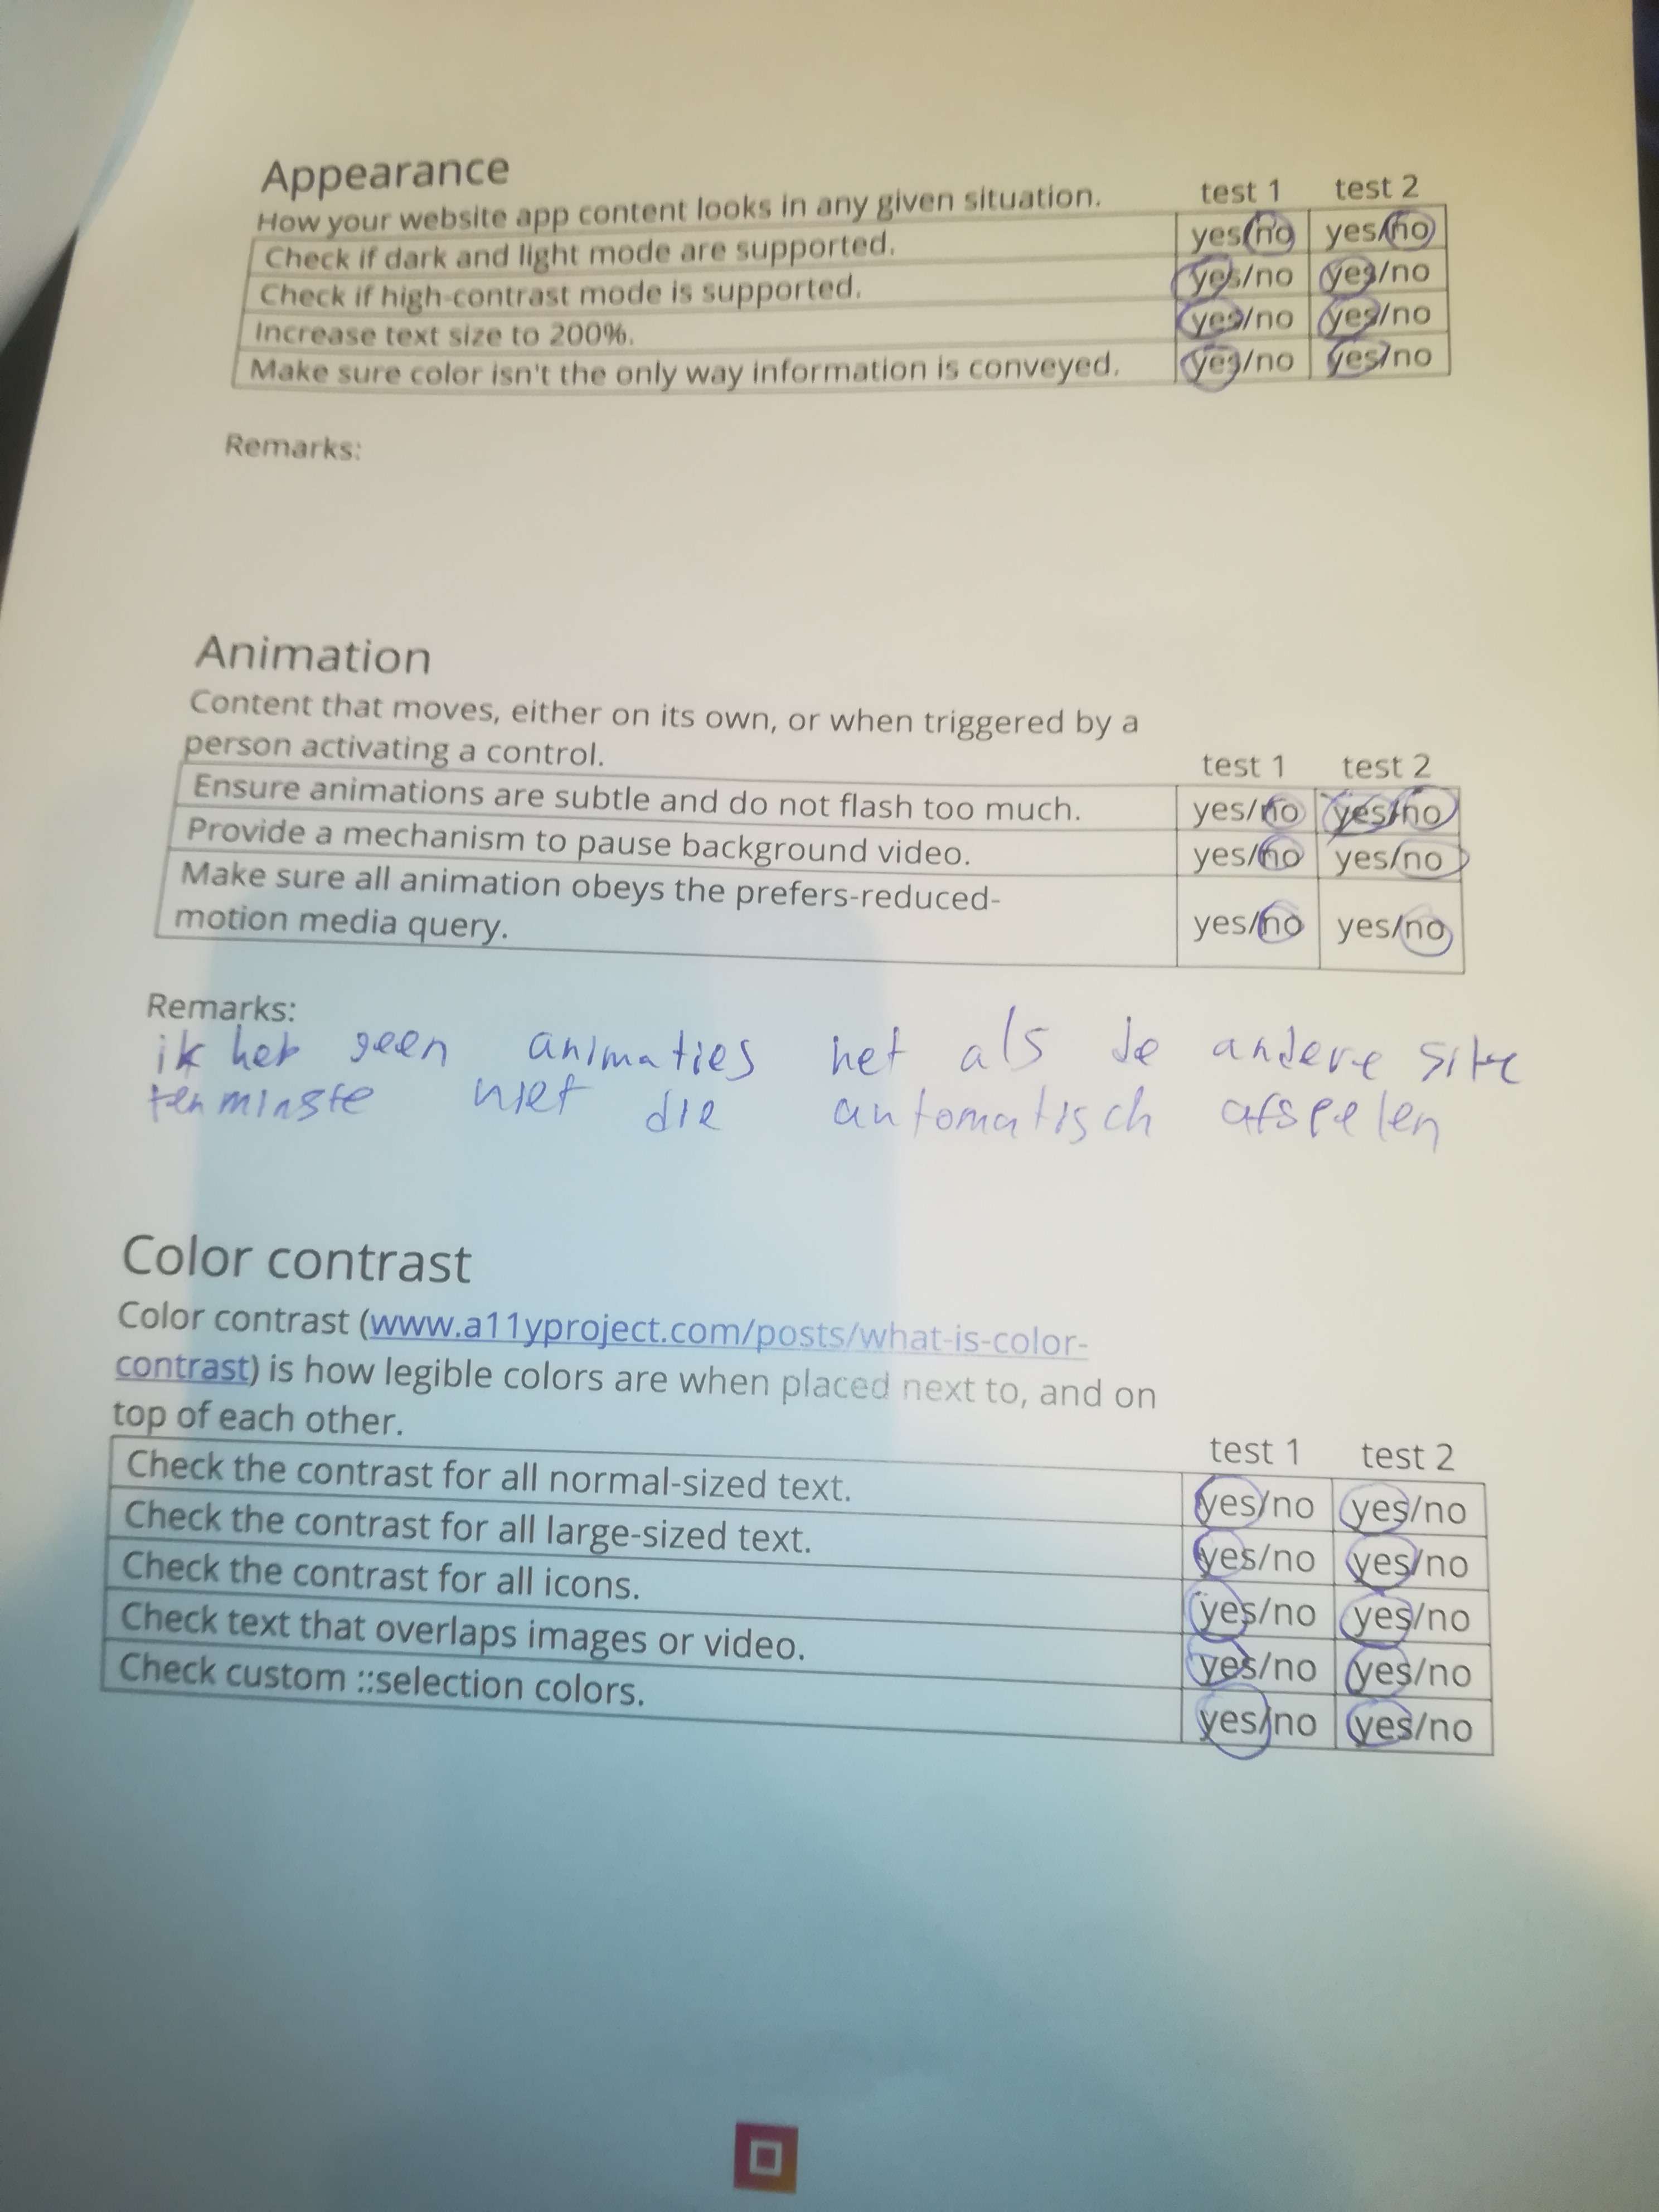 Appearance
How your website app content looks in any given situation. test 1 test 2
Check if dark and light mode are supported. yes/no yes/no
Check if high-contrast mode is supported. yes/no yes/no
Increase text size to 200%. yes/no yes/no
Make sure color isn't the only way information is conveyed. yes/no yes/no
Remarks:
Animation
Content that moves, either on its own, or when triggered by a
person activating a control. test 1 test 2
Ensure animations are subtle and do not flash too much. yes/no yes/no
Provide a mechanism to pause background video. yes/no yes/no
Make sure all animation obeys the prefers-reduced-
motion media query. yes/no yes/no
Remarks:
ik heb geen animaties net als de andere site
tenminste niet die automatisch afspelen
Color contrast
Color contrast (www.a11yproject.com/posts/what-is-color-
contrast) is how legible colors are when placed next to, and on
top of each other. test 1 test 2
Check the contrast for all normal-sized text. yes/no yes/no
Check the contrast for all large-sized text. yes/no yes/no
Check the contrast for all icons. yes/no yes/no
Check text that overlaps images or video. yes/no yes/no
Check custom ::selection colors. yes/no yes/no